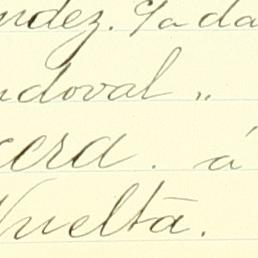 ndez. Ya da
ndoval „
cerd. á
Vuelta.